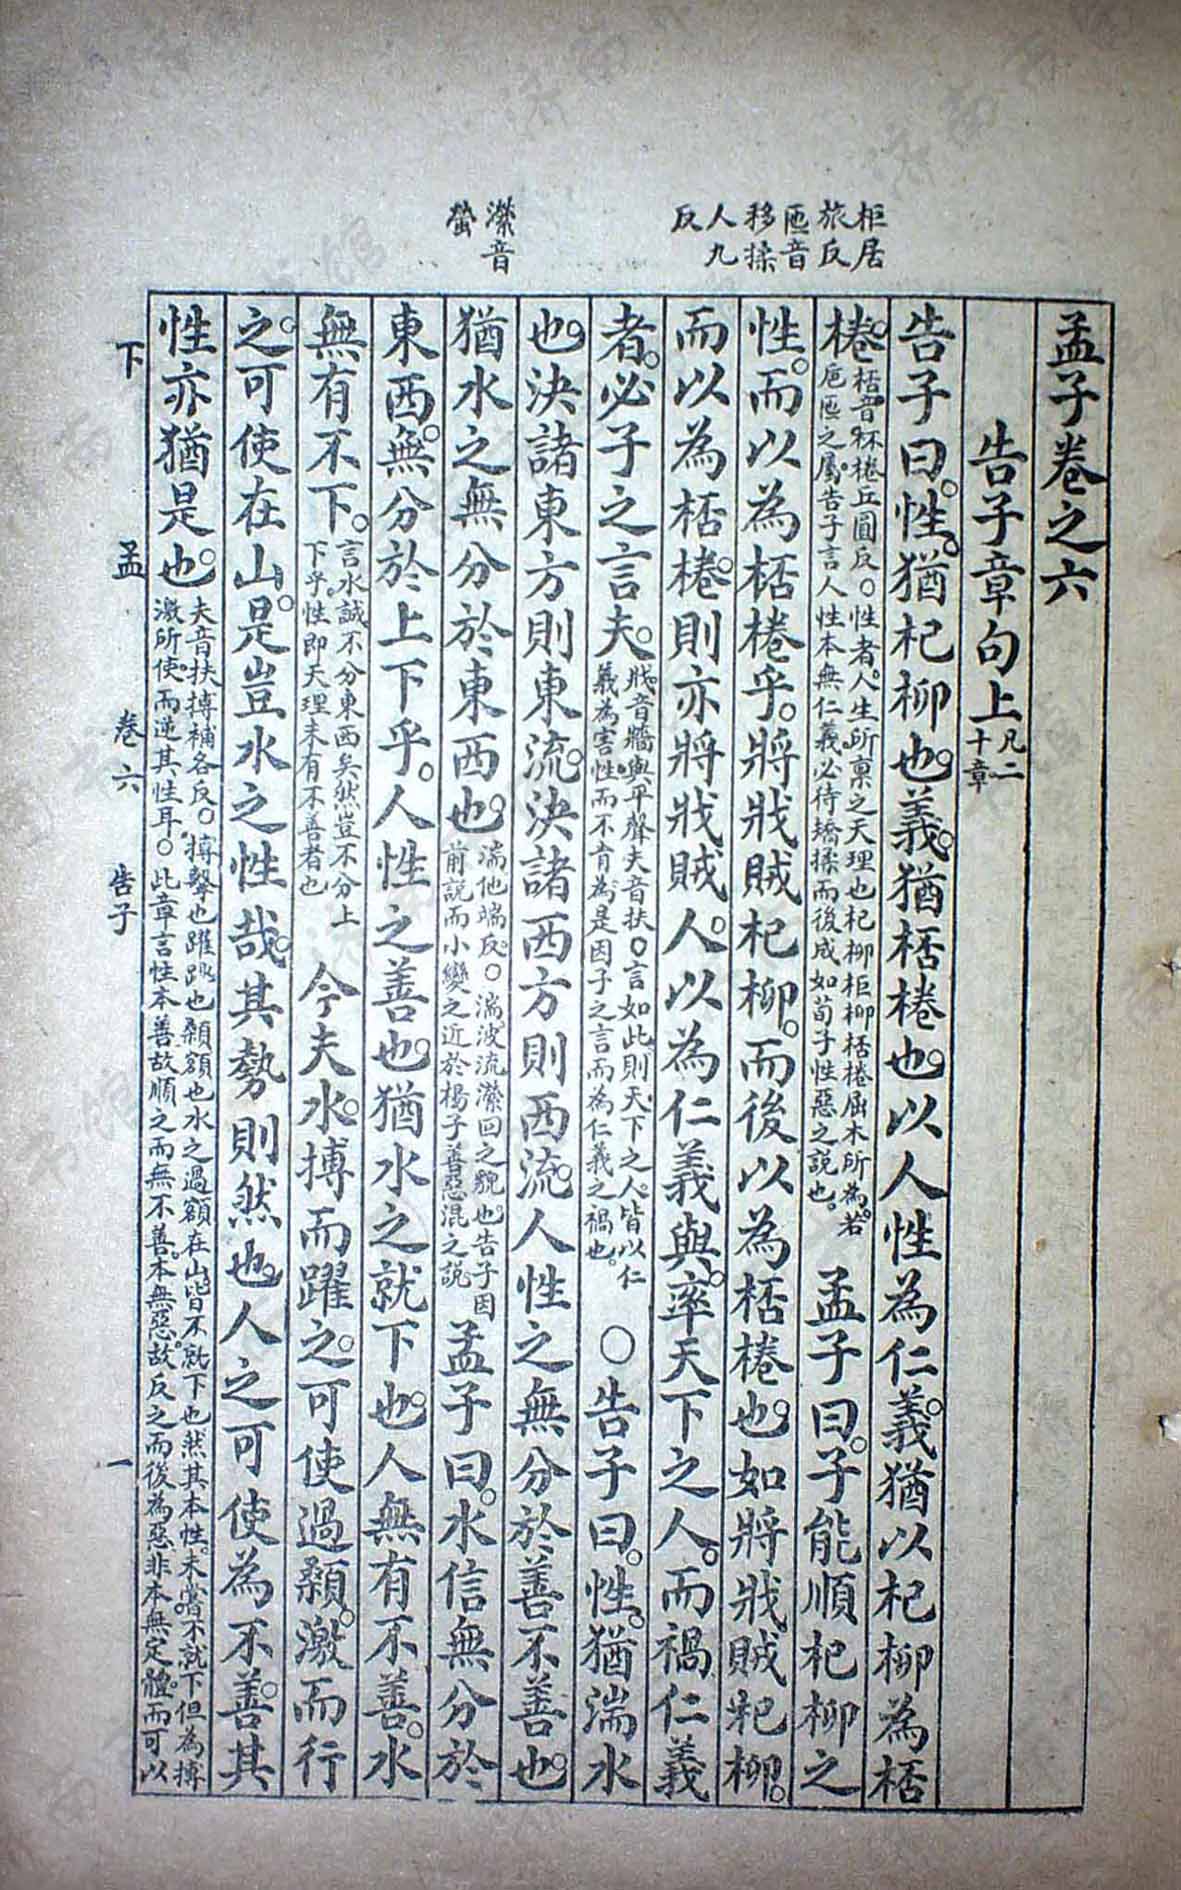 柜居
旅反
匜音
移揉
人九
反
濴音
螢
孟子卷之六
告子章句上凡二十章
告子曰。性。猶杞柳也。義。猶桮棬也。以人性為仁義。猶以杞柳為桮
棬。桮音杯棬丘圓反。○性者。人生所稟之天理也杞柳柜柳桮棬屈木所為。若卮匜之屬。告子言人性本無仁義必待矯揉而後成如荀子性惡之說也。孟子曰。子能順杞柳之
性。而以為桮棬乎。將戕賊杞柳。而後以為桮棬也。如將戕賊杞柳。
而以為桮棬。則亦將戕賊人。以為仁義與。率天下之人。而禍仁義
者。必子之言夫。戕音牆與平聲夫音扶○言如此則天下之人皆以仁義為害性。而不肯為。是因子之言而為仁義之禍也。○告子曰。性。猶湍水
也。決諸東方則東流。決諸西方則西流。人性之無分於善不善也。
猶水之無分於東西也。湍他端反。○湍波流濴回之貌也。告子因前說而小變之近於楊子善惡混之說孟子曰。水信無分於
東西。無分於上下乎。人性之善也。猶水之就下也。人無有不善。水
無有不下。言水誠不分東西矣然豈不分上下乎。性即天理未有不善者也今夫水。搏而躍之。可使過顙。激而行
之。可使在山。是豈水之性哉。其勢則然也。人之可使為不善。其
性亦猶是也。夫音扶搏補各反○搏擊也躍跳也顙額也水之過額在山皆不就下也然其本性未嘗不就下但為搏激所使。而逆其性耳○此章言性本善。故順之而無不善。本無惡。故反之而後為惡非本無定體。而可以
下 孟 卷六 告子 一